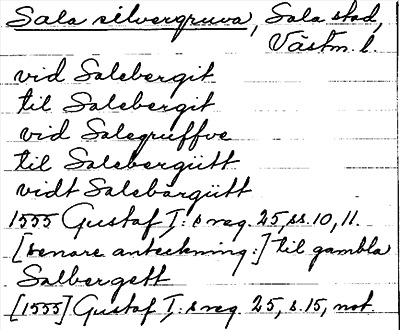 Sala silvergruva, Sala stad,
Västm. l.
vid Salebergit
til Salebergit
vid Salegruffve
til Salebergütt
vidt Salebärgütt
1555 Gustaf I:s reg. 25, ss. 10, 11.
[senare anteckning:] til gambla
Salbergett
[1555] Gustaf I:s reg. 25, s. 15, not